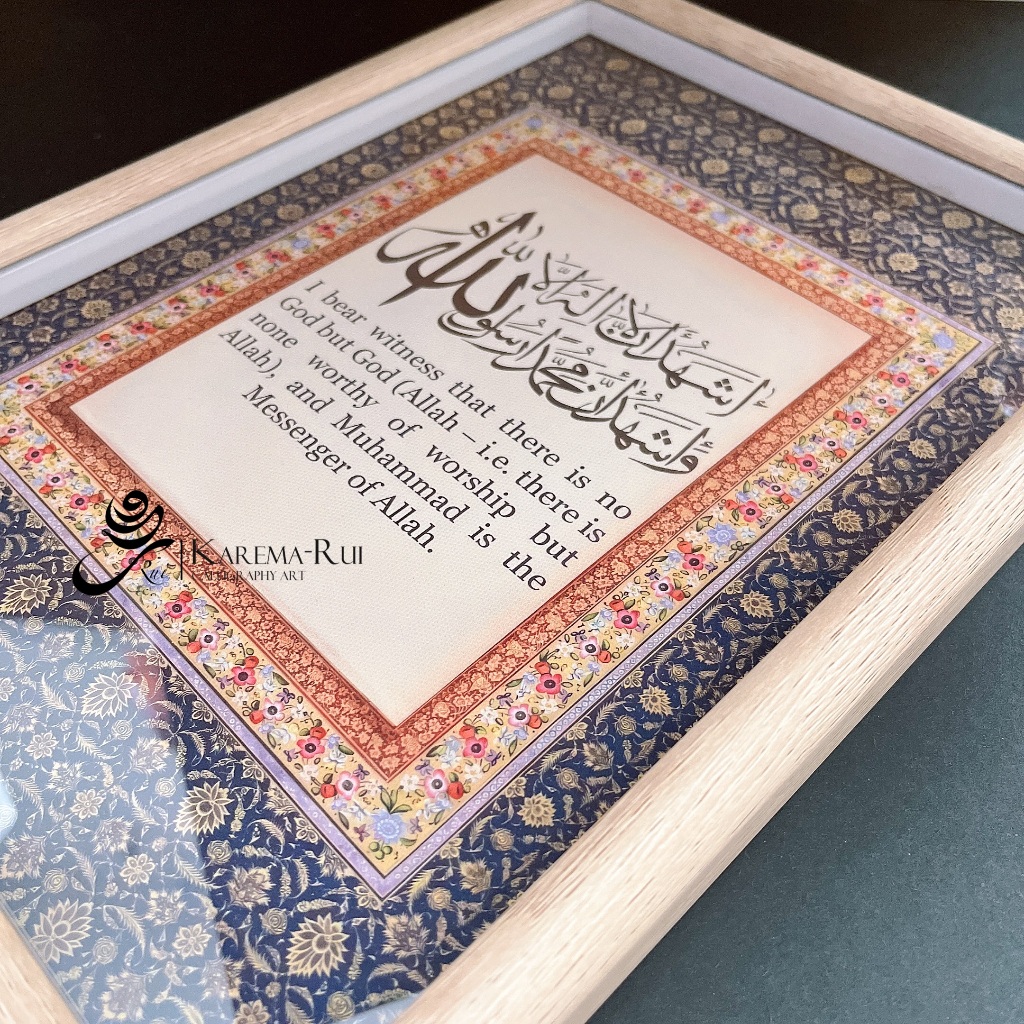 أشهد أن لا إله إلا الله
وأشهد أن محمدا رسول الله
I bear witness that there is no
God but God (Allah – i.e. there is
none worthy of worship but
Allah), and Muhammad is the
Messenger of Allah.
KAREMA-RUI
CALLIGRAPHY ART